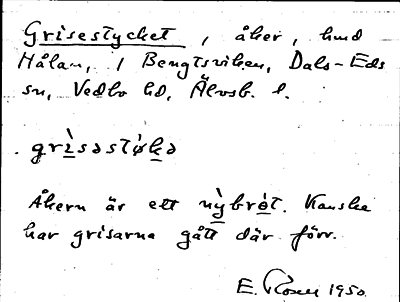 Grisestycket, åker, hmd
Hålan, i Bengtsviken, Dals-Eds
sn, Vedbo hd, Älvsb. l.
grìsəstỳkə
Åkern är ett nỳbròt. Kanske
har grisarna gått där förr.
E. Rosen 1950.